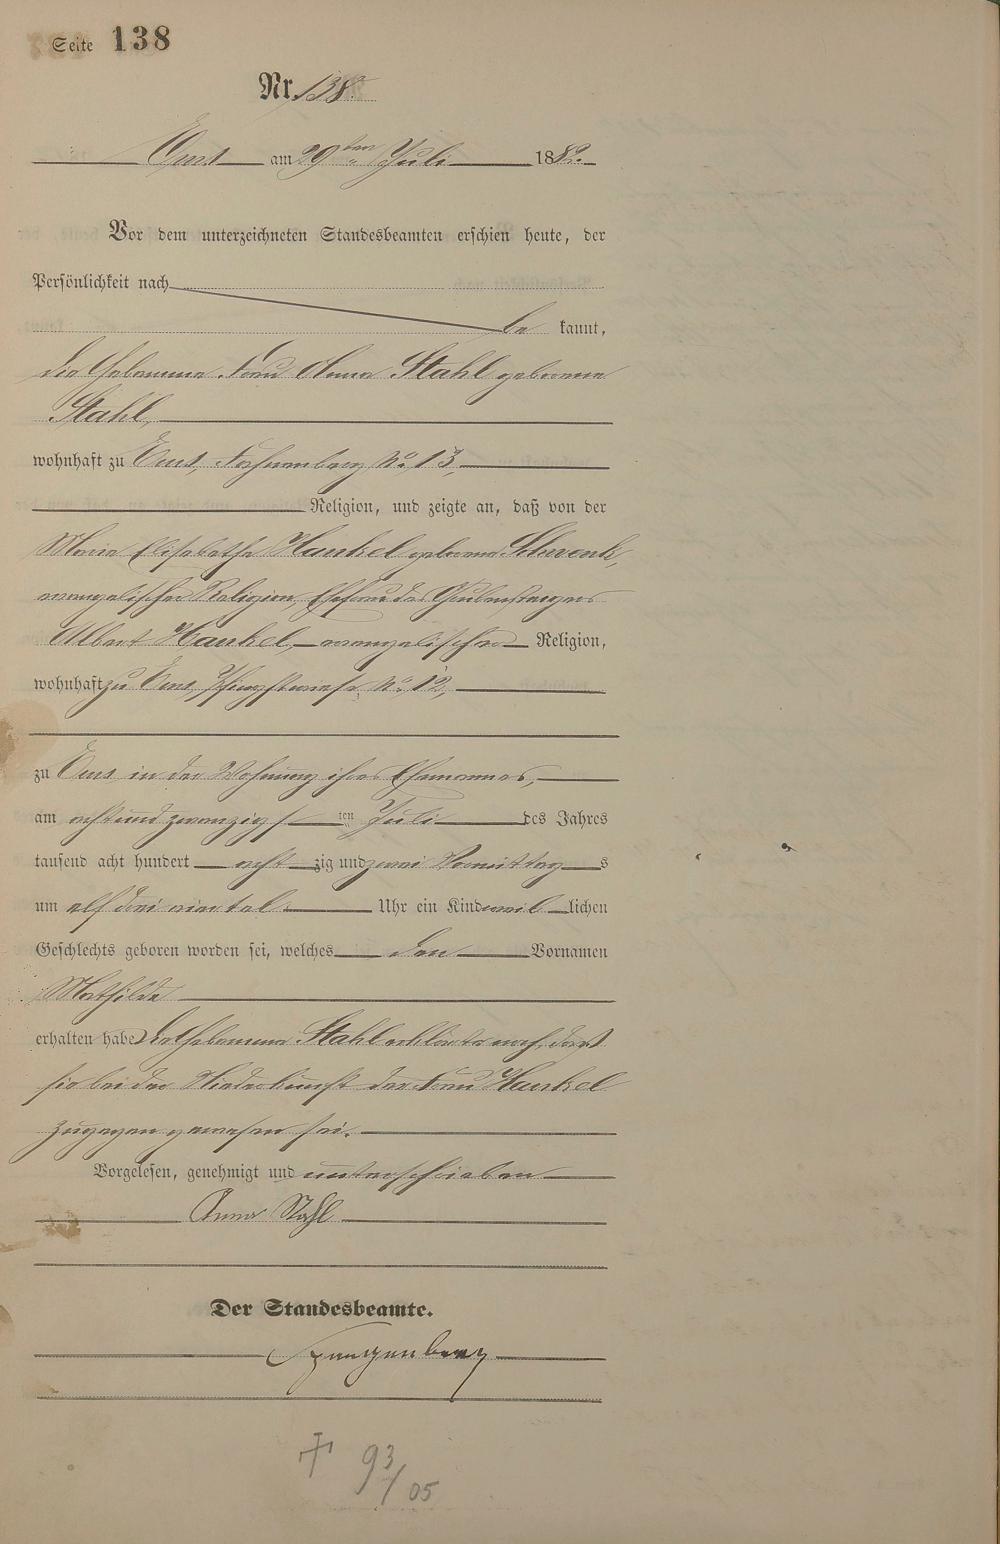 Seite 138
Nr. 138.
Ems am 29ten Juli 1882.
Vor dem unterzeichneten Standesbeamten erschien heute, der
Persönlichkeit nach
be kannt,
die Hebamme Frau Anna Stahl geborene
Stahl,
wohnhaft zu Ems, No. 13,
Religion, und zeigte an, daß von der
Maria Elisabetha Hankel geborene Schwenk,
evangelischer Religion, Ehefrau des Grubensteigers
Albert Hankel, evangelischer Religion,
wohnhaft zu Ems, No. 12,
zu Ems in der Wohnung ihres Ehemannes,
am acht und zwanzigsten Juli des Jahres
tausend acht hundert acht zig und zwei Vormittags
um elf drei viertel Uhr ein Kind weiblichen
Geschlechts geboren worden sei, welches den Vornamen
Mathilde
erhalten habe. Die Hebamme Stahl erklärte noch, daß
sie bei der Niederkunft der Frau Hankel
zugegen gewesen sei.
Vorgelesen, genehmigt und unterschrieben
Anna Stahl
Der Standesbeamte.
Spangenberg
† 93/05